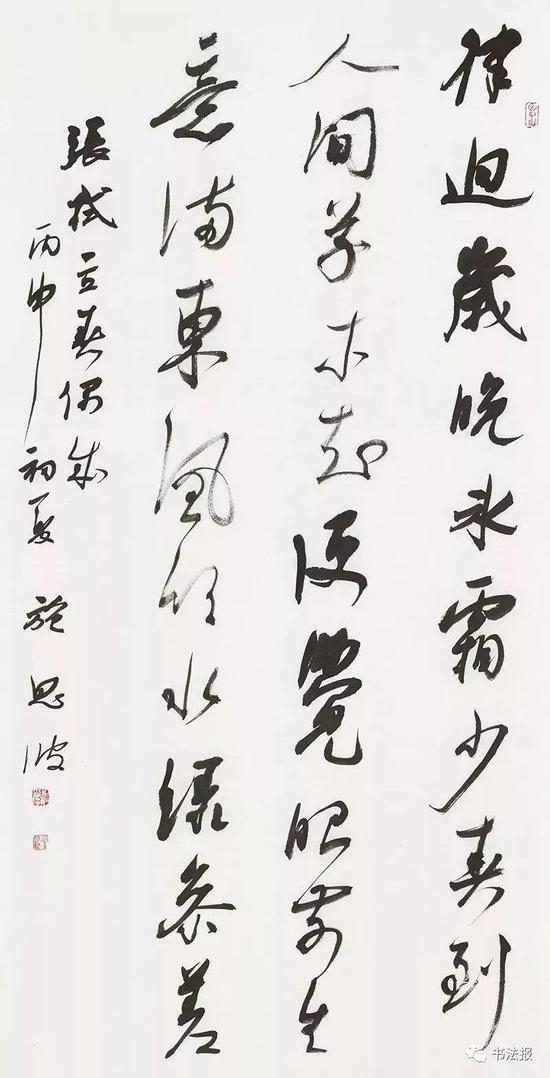 律迴歲晚冰霜少春到
人间草木知便覺眼前生
意满東風吹水绿参差
張栻立春偶成
丙申初夏 施思波
书法报